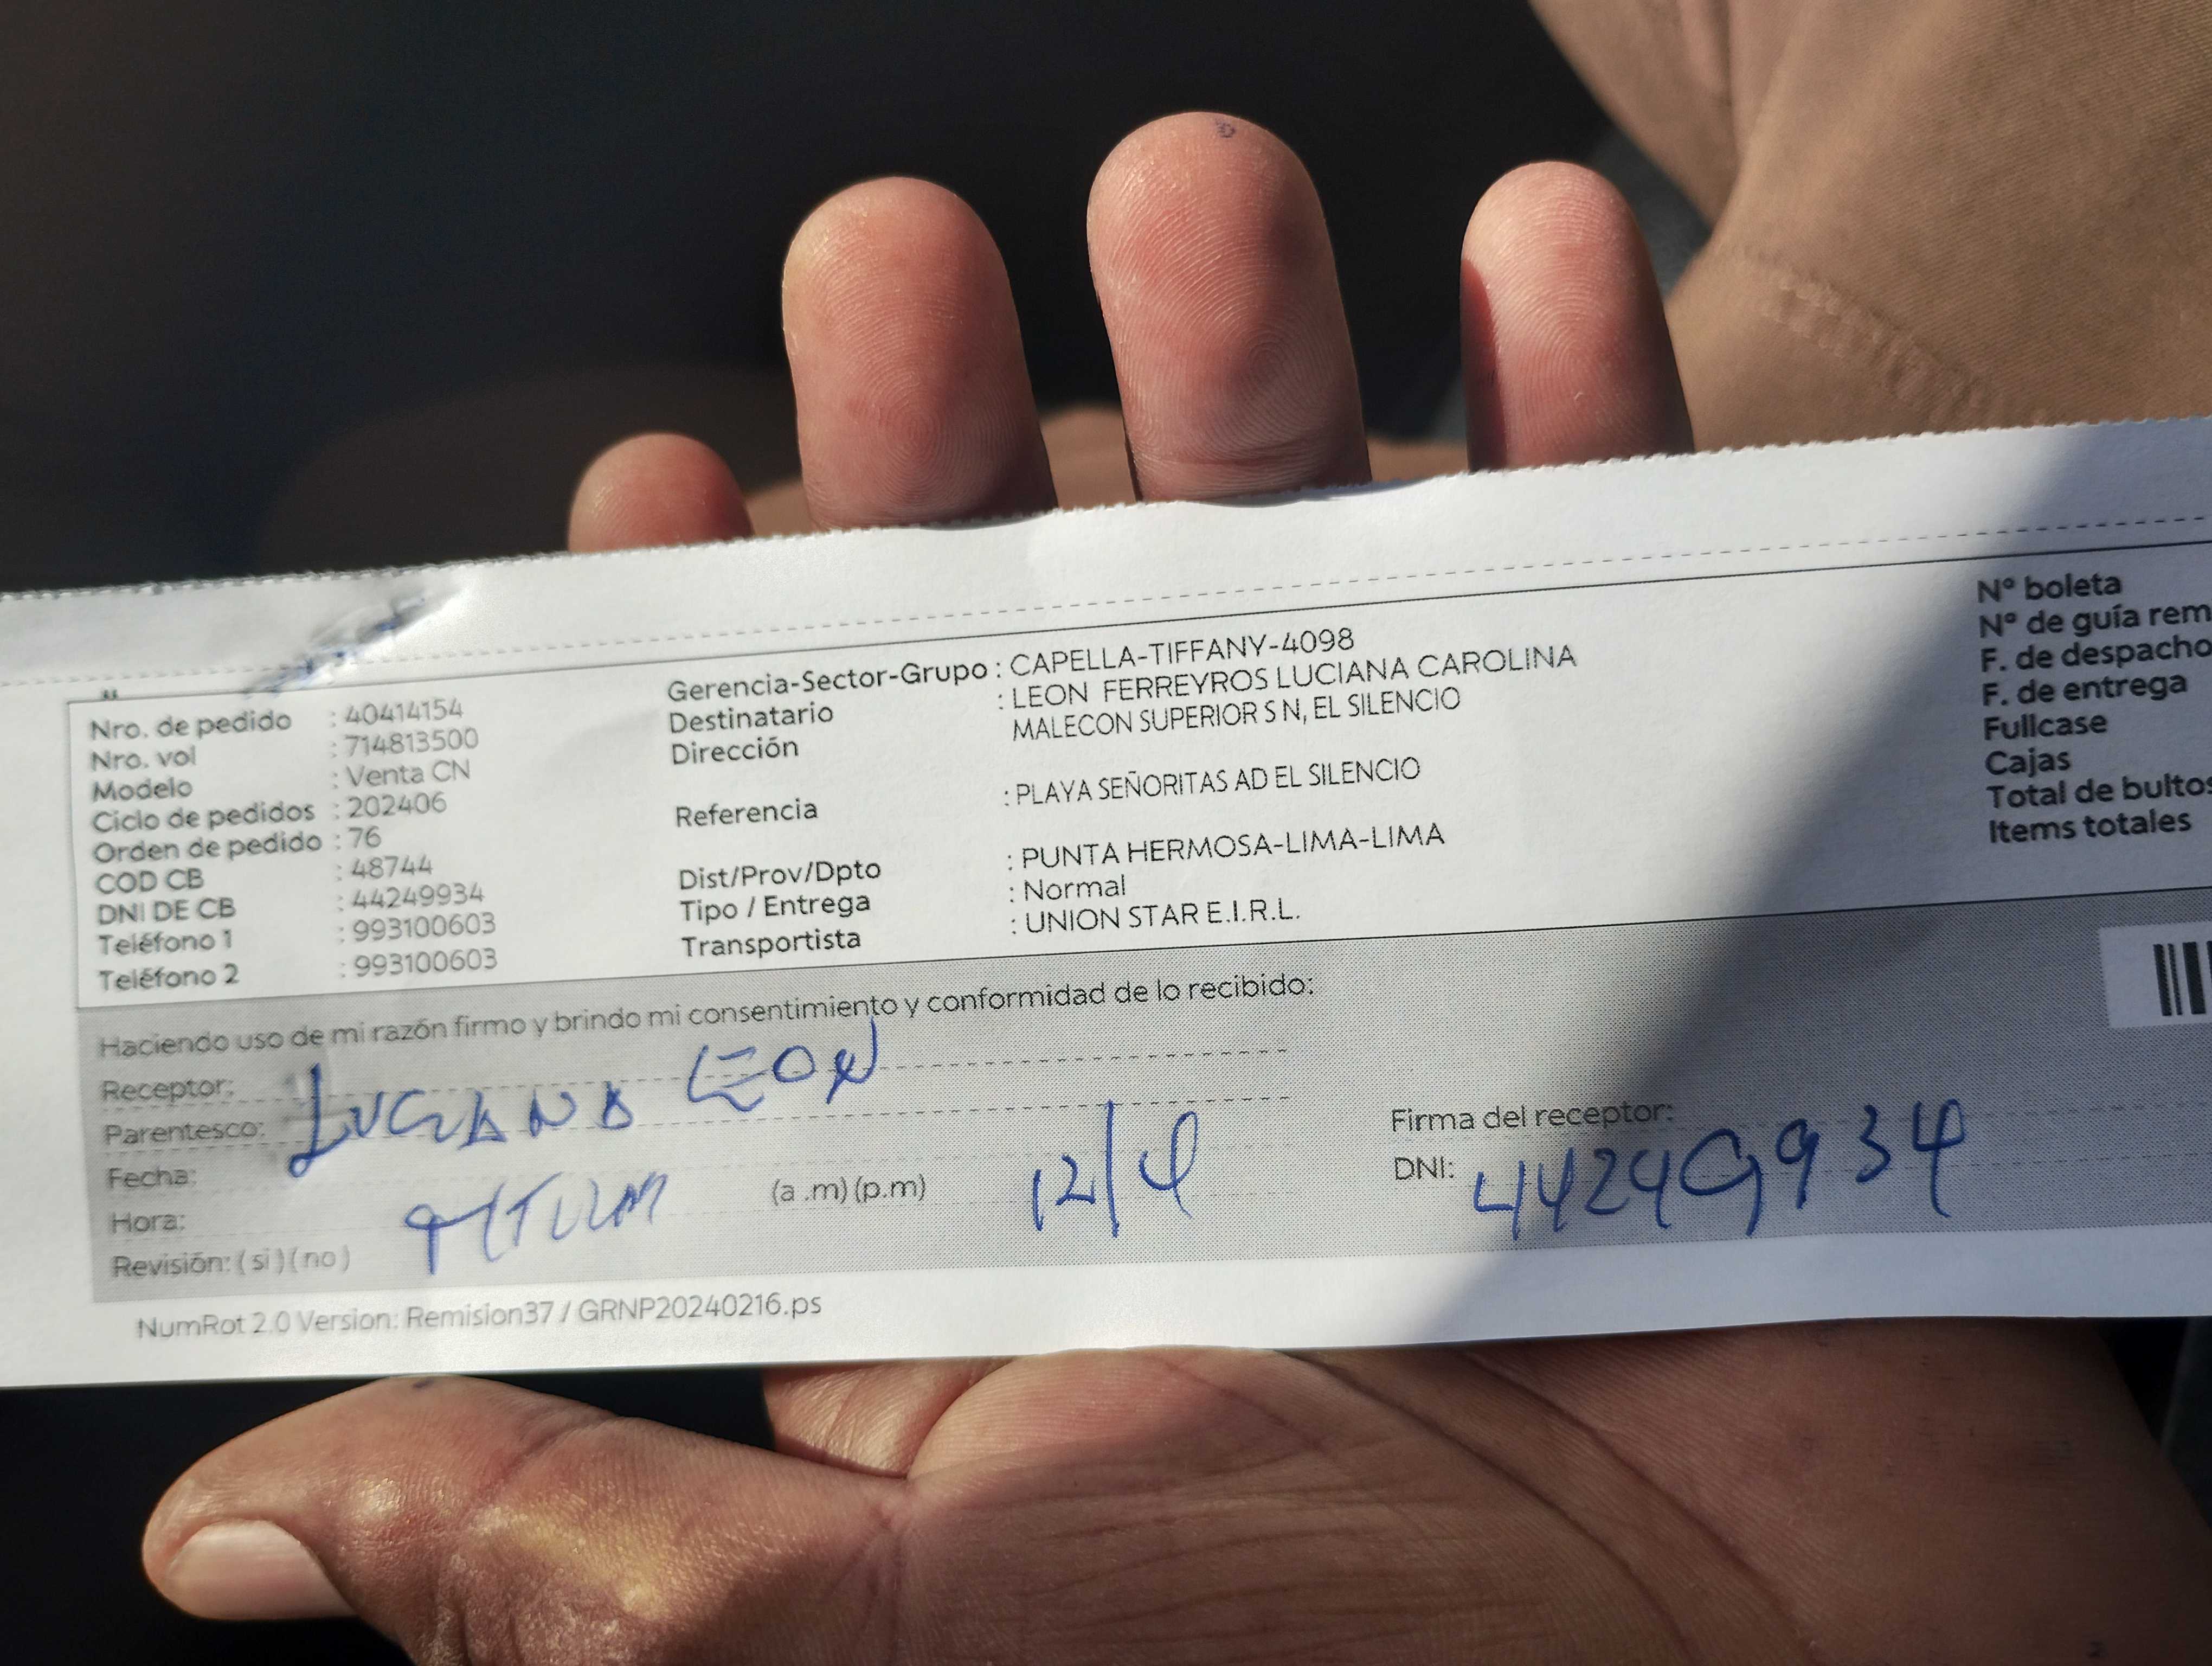 Nro. de pedido : 40414154
Nro. vol : 714813500
Modelo : Venta CN
Ciclo de pedidos : 202406
Orden de pedido : 76
COD CB : 48744
DNI DE CB : 44249934
Teléfono 1 : 993100603
Teléfono 2 : 993100603
Gerencia-Sector-Grupo : CAPELLA-TIFFANY-4098
Destinatario : LEON FERREYROS LUCIANA CAROLINA
Dirección MALECON SUPERIOR S N, EL SILENCIO
Referencia : PLAYA SEÑORITAS AD EL SILENCIO
Dist/Prov/Dpto : PUNTA HERMOSA-LIMA-LIMA
Tipo / Entrega : Normal
Transportista : UNION STAR E.I.R.L.
Nº boleta
Nº de guía rem
F. de despacho
F. de entrega
Fullcase
Cajas
Total de bultos
Items totales
Haciendo uso de mi razón firmo y brindo mi consentimiento y conformidad de lo recibido:
Receptor: LUCIANA LEON
Parentesco:
Fecha:
Hora: (a .m) (p.m) 12/4
Revisión: ( si ) ( no )
Firma del receptor:
DNI: 44249934
NumRot 2.0 Version: Remision37 / GRNP20240216.ps